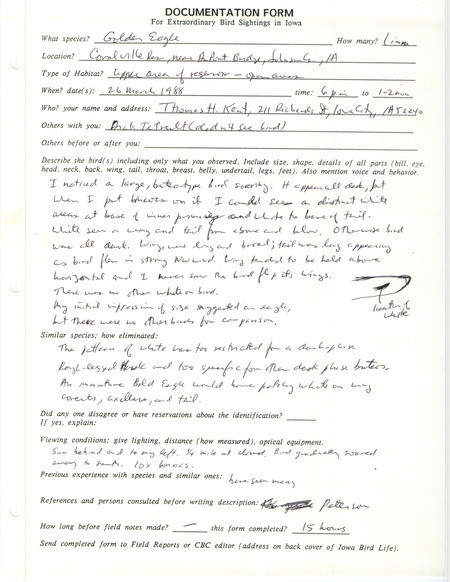 DOCUMENTATION FORM
For Extraordinary Bird Sightings in Iowa
What species? Golden Eagle How many? 1 imm
Location? Coralville Res, near DuPont Bridge, Johnson Co., IA
Type of Habitat? Upper area of reservoir - open area
When? date(s): 26 March 1988 time: 6 pm to 1-2 min.
Who? your name and address: Thomas H. Kent, 211 Richards St, Iowa City, IA 52240
Others with you: Dick Tetrault (didn't see bird)
Others before or after you:
Describe the bird(s) including only what you observed. Include size, shape, details of all parts (bill, eye,
head, neck, back, wing, tail, throat, breast, belly, undertail, legs, feet). Also mention voice and behavior.
I noticed a large, buteo type bird soaring. It appeared all dark, but
when I put binocs on it I could see a distinct white
areas at base of inner primaries and white to base of tail.
White seen on wing and tail from above and below. Otherwise bird
was all dark. Wings were long and broad; tail was long appearing
as bird flew in strong NW wind. Wing tended to be held above
horizontal and I never saw the bird flap its wings.
There was no other white on bird.
My initial impression of size suggested an eagle,
but there were no other birds for comparison.
location of white
Similar species; how eliminated:
The pattern of white was too restricted for a dark phase
Rough-legged Hawk and too specific for other dark phase buteos.
An immature Bald Eagle would have patchy white on wing
coverts, axillars, and tail.
Did any one disagree or have reservations about the identification?
If yes, explain:
Viewing conditions: give lighting, distance (how measured), optical equipment.
Sun behind and to my left. 1/4 mile at closest. Bird gradually soared
away to south. 10x binocs.
Previous experience with species and similar ones: have seen many
References and persons consulted before writing description: Peterson
How long before field notes made? — this form completed? 15 hours
Send completed form to Field Reports or CBC editor (address on back cover of Iowa Bird Life).